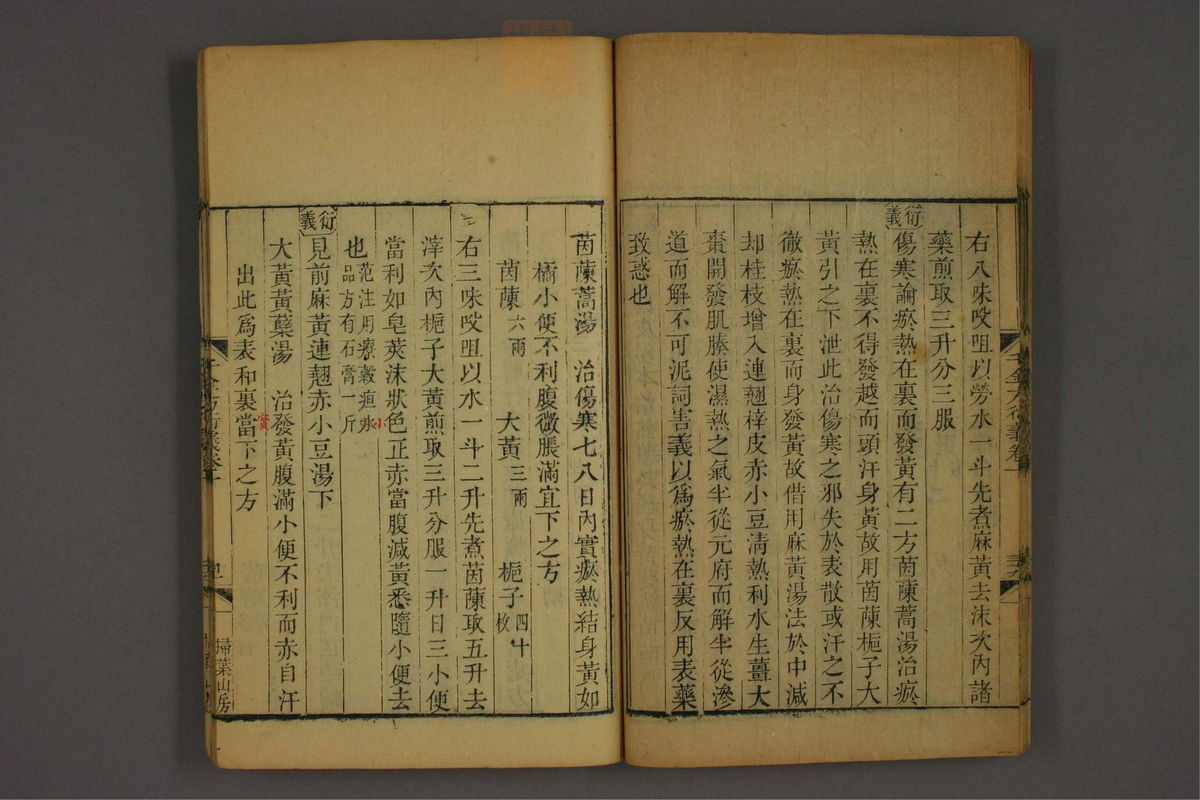 右八味㕮咀以勞水一斗先煮麻黃去沫次內諸
藥煎取三升分三服
衍義
傷寒論瘀熱在裏而發黃有二方茵蔯蒿湯治瘀
熱在裏不得發越而頭汗身黃故用茵蔯梔子大
黃引之下泄此治傷寒之邪失於表散或汗之不
徹瘀熱在裏而身發黃故借用麻黃湯法於中減
却桂枝增入連翹梓皮赤小豆淸熱利水生薑大
棗開發肌腠使濕熱之氣半從元府而解半從滲
道而解不可泥詞害義以爲瘀熱在裏反用表藥
致惑也
茵蔯蒿湯 治傷寒七八日內實瘀熱結身黃如
橘小便不利腹微脹滿宜下之方
茵蔯六兩 大黃三兩 梔子四十枚
右三味㕮咀以水一斗二升先煮茵蔯取五升去
滓次內梔子大黃煎取三升分服一升日三小便
當利如皂莢沫狀色正赤當腹減黃悉隨小便去
也范注用療穀疸
品方有石膏一斤
衍義
見前麻黃連翹赤小豆湯下
大黃黃蘗湯 治發黃腹滿小便不利而赤自汗
出此爲表和裏當下之方
實
小
千金方衍義卷十
掃葉山房